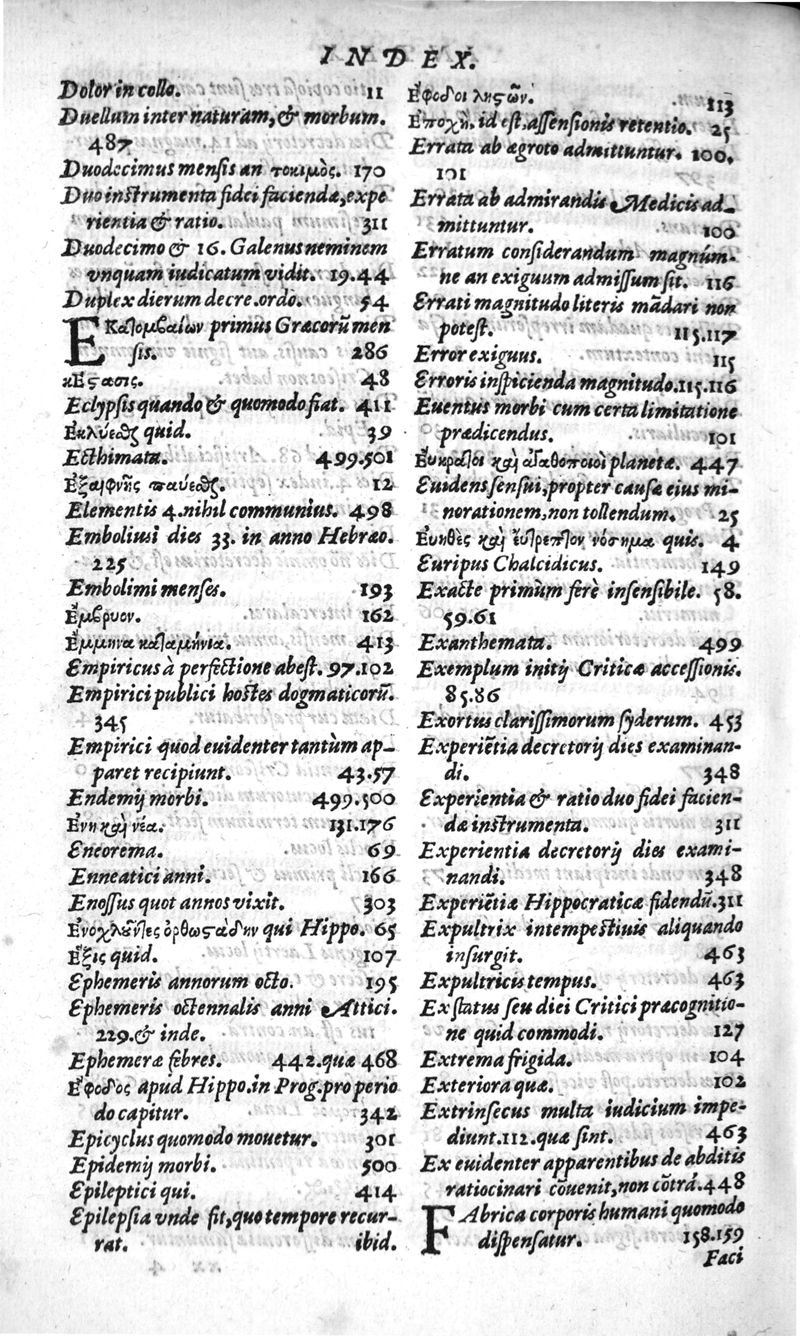 INDEX.
Dolor in collo. 11
Duellum inter naturam, & morbum.
487
Duodecimus mensis an τοκιμὸς. 170
Duo instrumenta fidei faciendæ, expe
rientia & ratio. 311
Duodecimo & 16. Galenus neminem
vnquam iudicatum vidit. 19.44
Duplex dierum decre. ordo. 54
Εκατομβαίων primus Græcorũ men
sis. 286
κἘϛασις. 48
Eclypsis quando & quomodo fiat. 411
Ἐκλύεσθ quid. 39
Ecthimata. 499.501
Ἐξαιφνῆς παύεσθ. 12
Elementis 4. nihil communius. 498
Emboliusi dies 33. in anno Hebræo.
225
Embolimi menses. 193
Ἐμβρυον. 162
Ἐμμηνα καταμήνια. 413
Empiricus à perfectione abest. 97.102
Empirici publici hostes dogmaticorũ.
345
Empirici quod euidenter tantùm ap-
paret recipiunt. 43.57
Endemij morbi. 499.500
Ἐνη καὶ νέα. 131.176
Eneorema. 69
Enneatici anni. 166
Enossus quot annos vixit. 303
Ἐνοχλοῦντες ὀρθοϛάδην qui Hippo. 65
Ἐξις quid. 107
Ephemeris annorum octo. 195
Ephemeris octennalis anni Attici.
229. & inde.
Ephemeræ febres. 442. quæ 468
Ἐφοδος apud Hippo. in Prog. pro perio
do capitur. 342
Epicyclus quomodo mouetur. 301
Epidemij morbi. 500
Epileptici qui. 414
Epilepsia vnde fit, quo tempore recur-
rat. ibid.
Ἐφοδοι ληστῶν. 113
Ἐποχὴ. id est, assensionis retentio. 25
Errata ab ægroto admittuntur. 100.
101
Errata ab admirandis Medicis ad-
mittuntur. 100
Erratum considerandum magnúm-
ne an exiguum admissum sit. 116
Errati magnitudo literis mãdari non
potest. 115.117
Error exiguus. 115
Erroris inspicienda magnitudo. 115.116
Euentus morbi cum certa limitatione
prædicendus. 101
Ἐυκραῖοι καὶ ἀγαθοποιοὶ planetæ. 447
Euidens sensui, propter causæ eius mi-
norationem, non tollendum. 25
Ἐυηθὲς καὶ ἔυτρεπτον νόσημα quis. 4
Euripus Chalcidicus. 149
Exacte primùm ferè insensibile. 58.
59.61
Exanthemata. 499
Exemplum initij Criticæ accessionis.
85.86
Exortus clarissimorum syderum. 453
Experiẽtia decretorij dies examinan-
di. 348
Experientia & ratio duo fidei facien-
dæ instrumenta. 311
Experientia decretorij dies exami-
nandi. 348
Experiẽtiæ Hippocraticæ fidendũ. 311
Expultrix intempestiuis aliquando
insurgit. 463
Expultricis tempus. 463
Ex status seu diei Critici præcognitio-
ne quid commodi. 127
Extrema frigida. 104
Exteriora quæ. 102
Extrinsecus multa iudicium impe-
diunt. 112. quæ sint. 463
Ex euidenter apparentibus de abditis
ratiocinari cõuenit, non cõtrà. 448
FAbrica corporis humani quomodo
dispensatur. 158.159
Faci